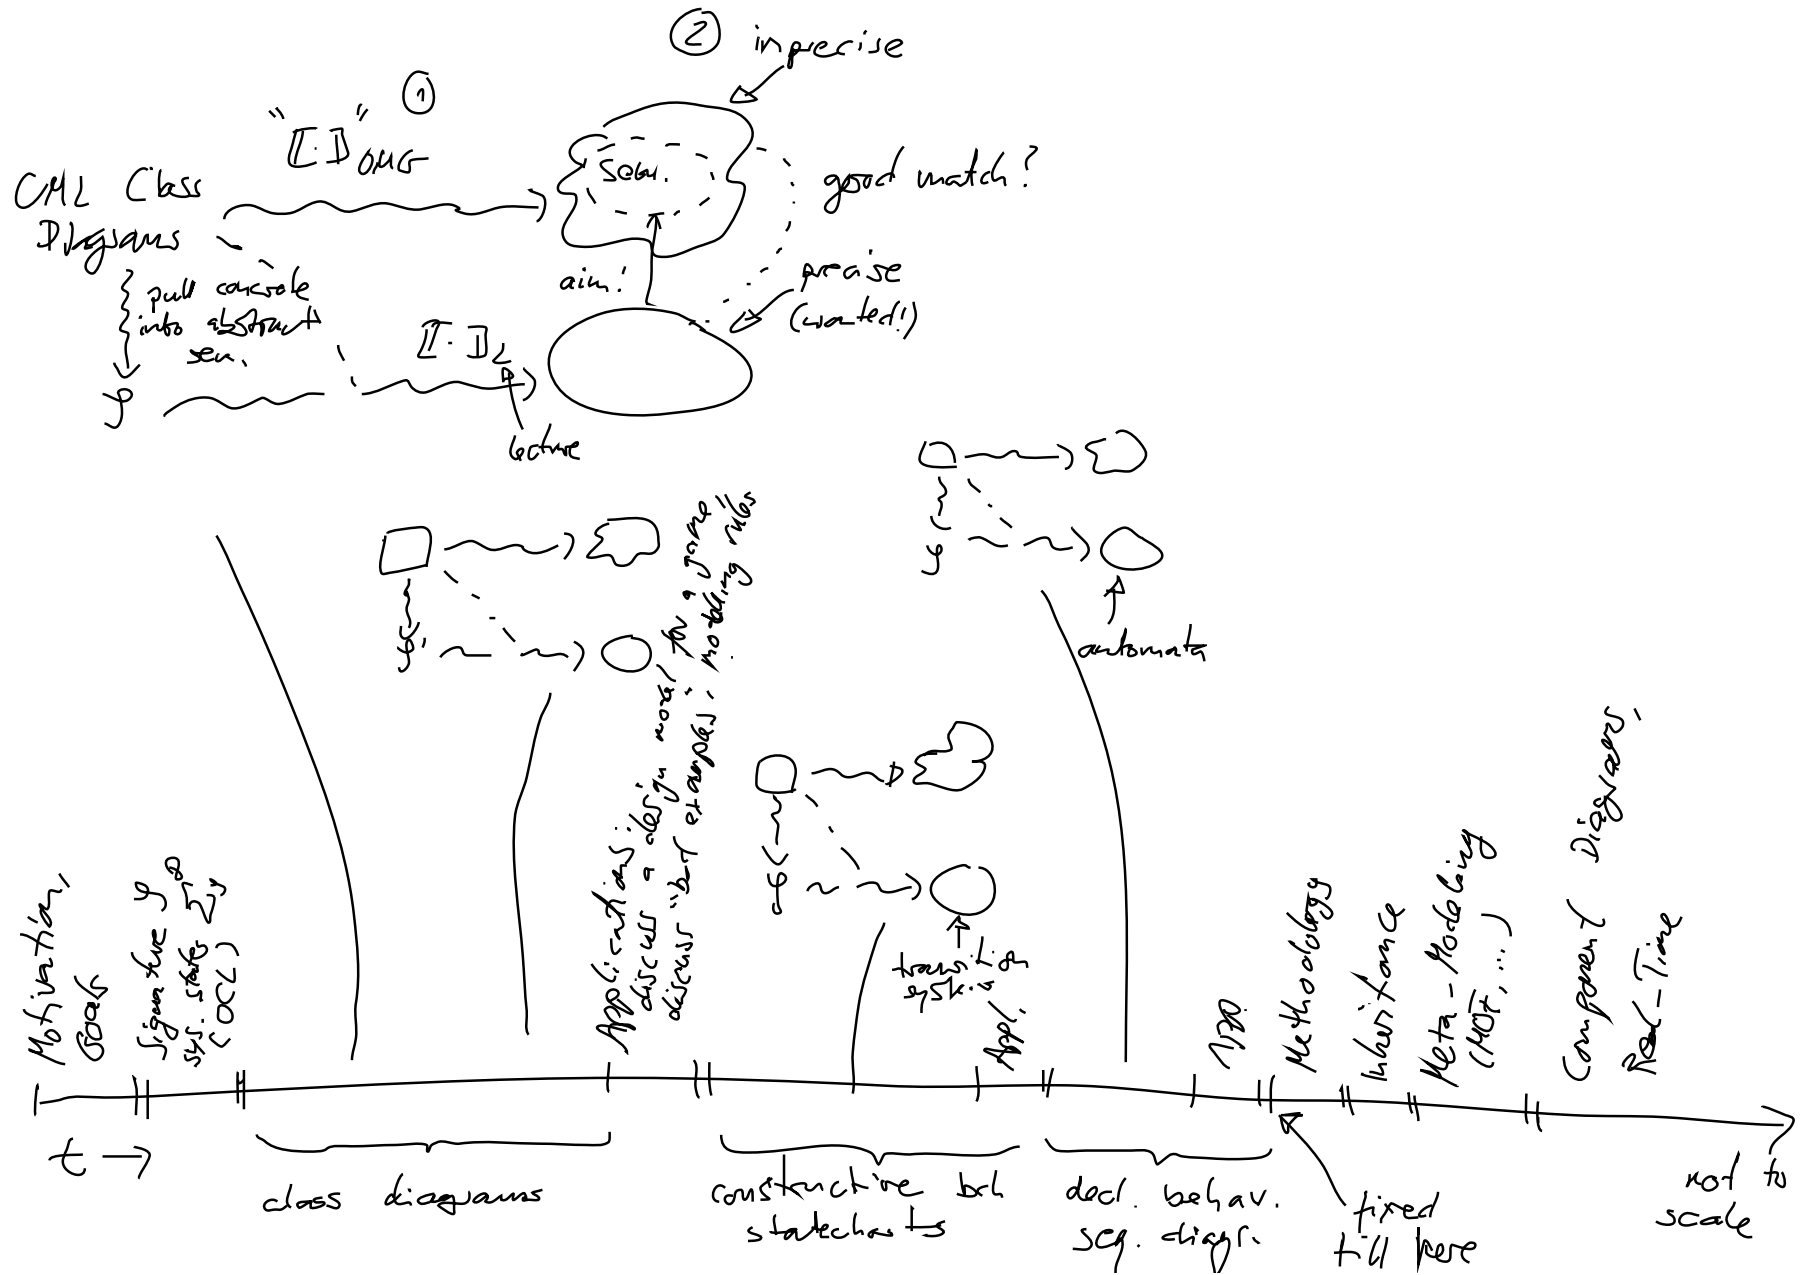 ② imprecise
①
"⟦·⟧" OMG
UML Class
Diagrams
Sem.
good match?
aim!
precise
(wanted!)
pull concrete
into abstract
sen.
⟦·⟧L
𝒮
lecture
𝒮
automata
𝒮
𝒮
transition
system
Motivation,
Goals
Signature 𝒮
sys. states Σ𝒮
(OCL)
Applications:
discuss a design model for a game
discuss "bad" examples; modelling rules
Appl.
App.
Methodology
Inheritance
Meta-Modeling
(MOF, ...)
Component Diagrams,
Real-Time
t →
class diagrams
constructive beh
statecharts
decl. behav.
seq. diagr.
fixed
till here
not to
scale